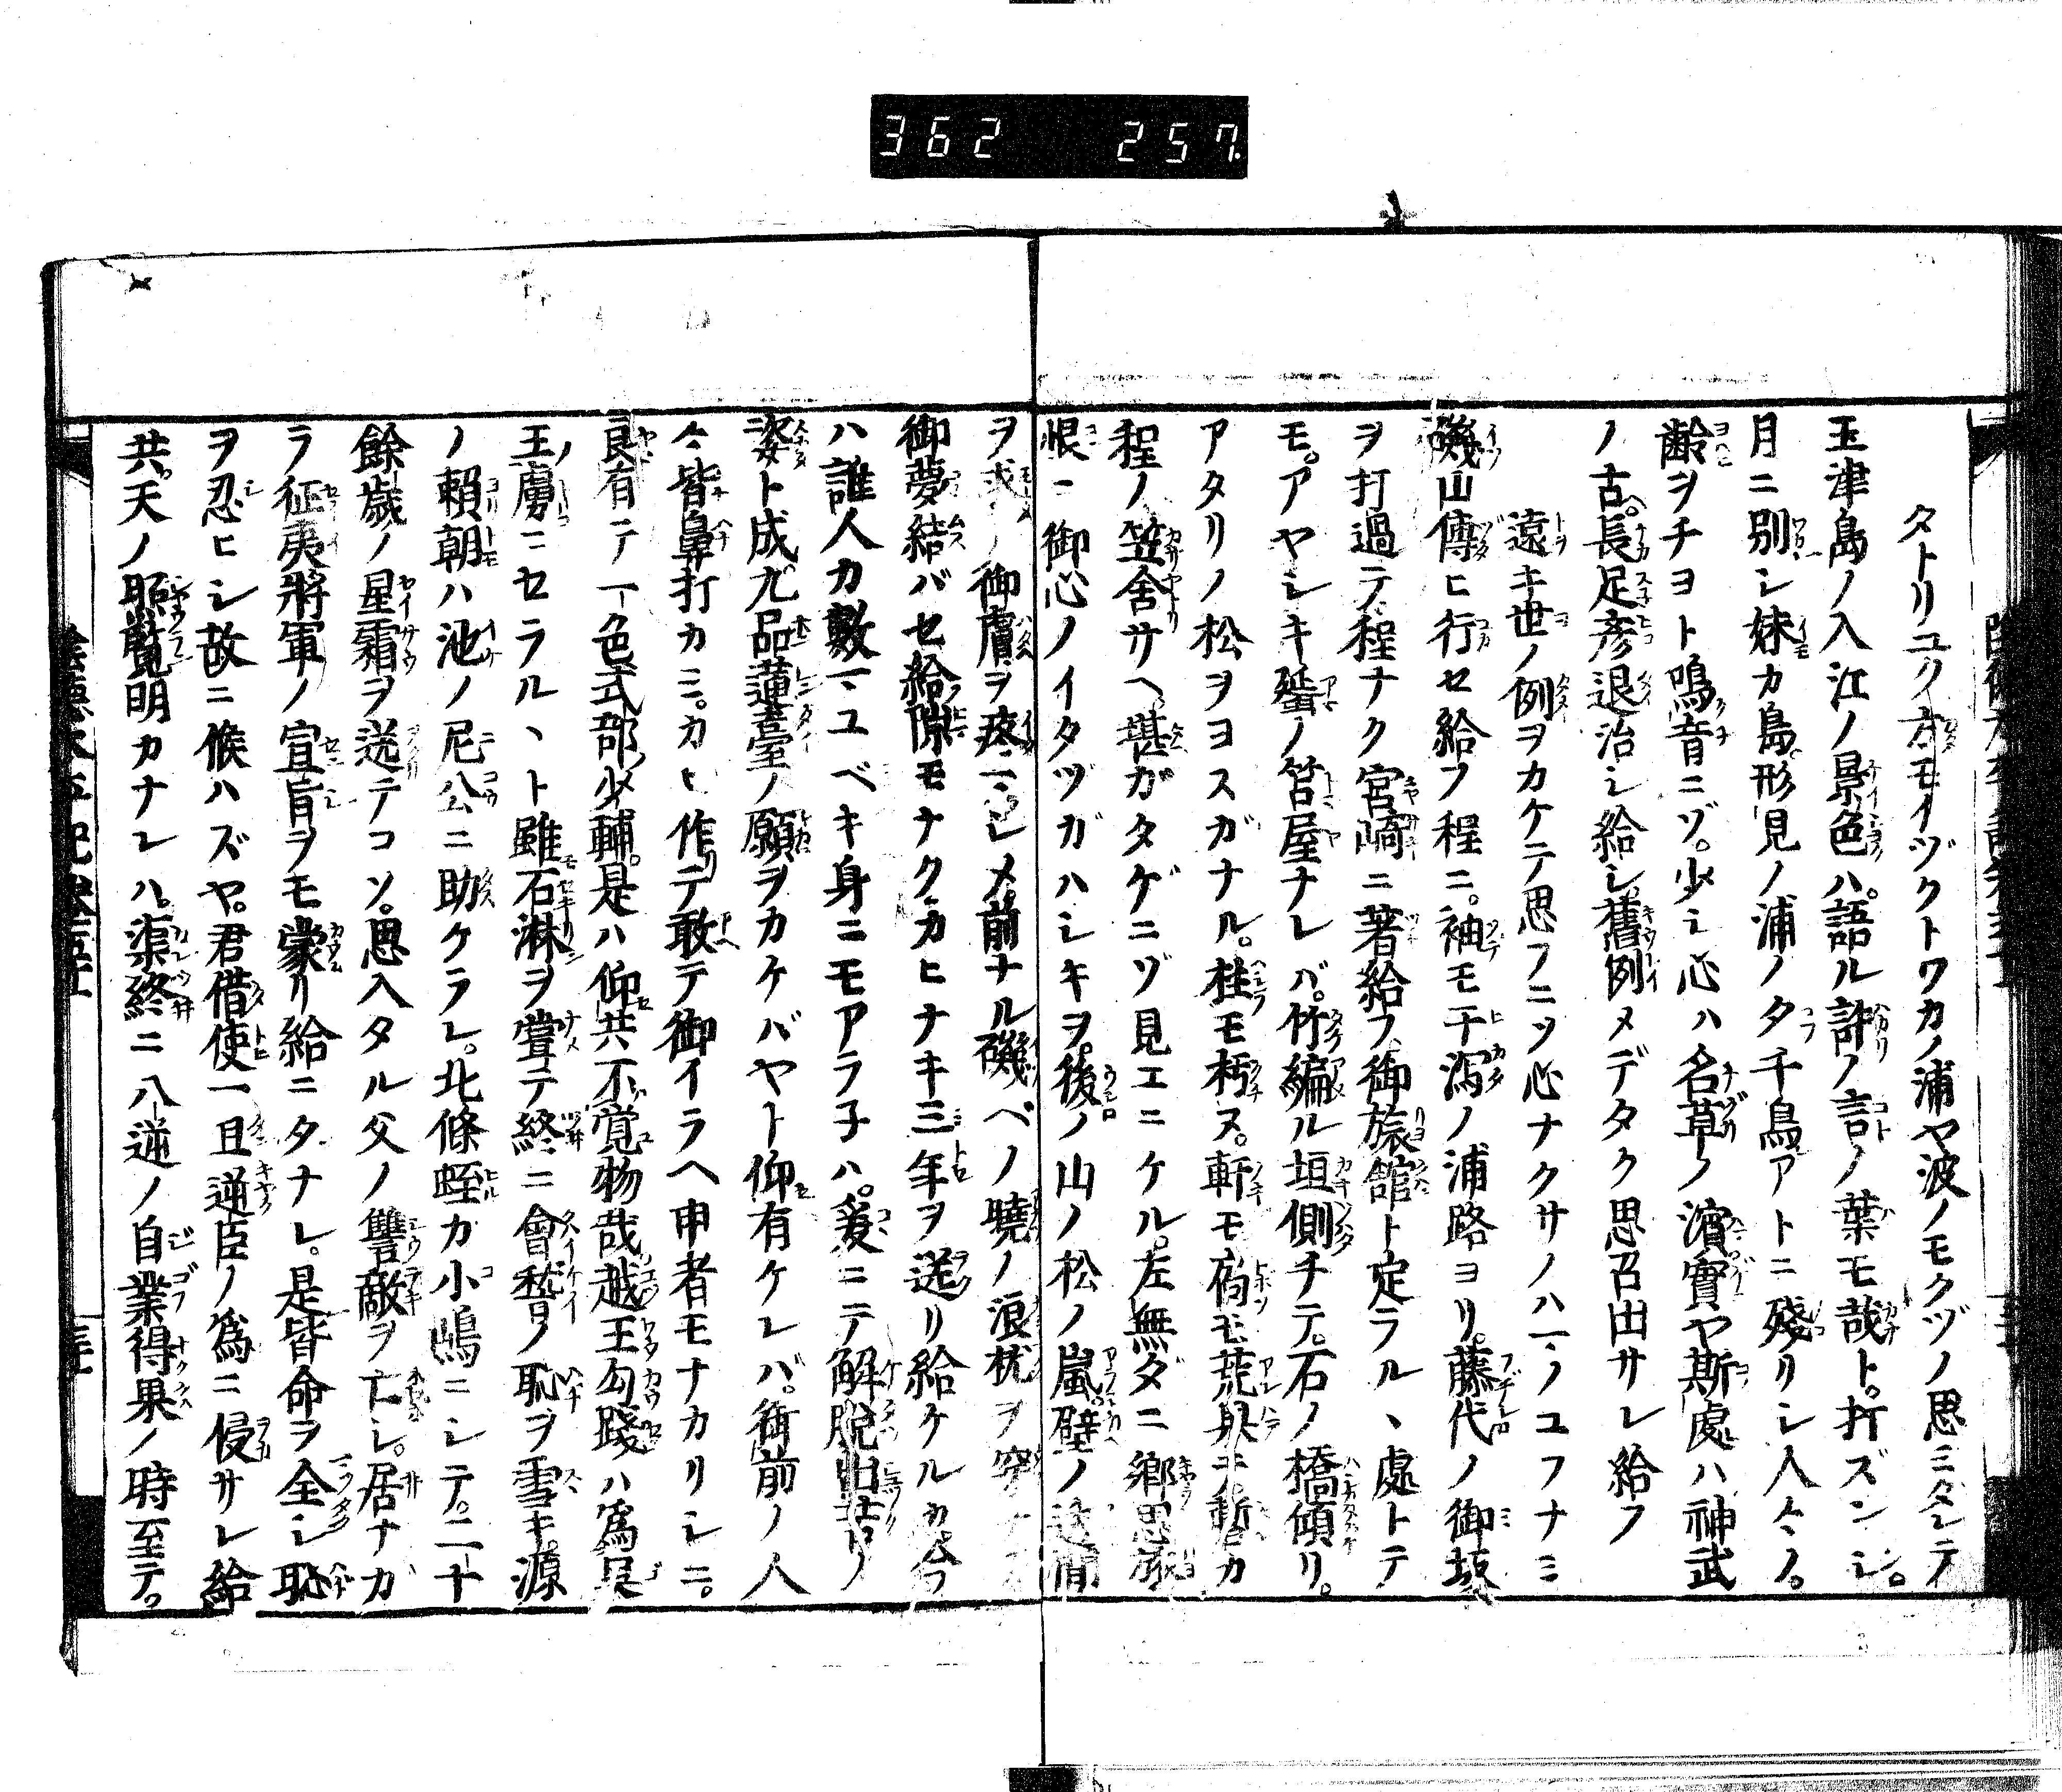 362 257
タトリユク方モイヅクトワカノ浦ヤ波ノモクヅノ思ミダレテ
玉津島ノ入江ノ景色ハ。語ル許ノ言ノ葉モ哉ト。打ズンシ。
月ニ別レ妹カ島。形見ノ浦ノ夕千鳥アトニ殘リシ入々ノ。
齢ヲチヨト鳴音ニゾ。少シ心ハ名草ノ濱實ヤ斯處ハ神武
ノ古。長足彦退治シ給シ。舊例メデタク思召出サレ給フ
遠キ世ノ例ヲカケテ思フニソ心ナクサノハマノユフナミ
磯山傳ヒ行セ給フ程ニ。袖モ干瀉ノ浦路ヨリ。藤代ノ御坂
ヲ打過テ程ナク宮崎ニ著給フ御旅館ト定ラルヽ處トテ
モ。アヤシキ蜑ノ笘屋ナレバ。竹編ル垣側チテ。石ノ橋傾リ。
アタリノ松ヲヨスガナル。柱モ朽ヌ。軒モ扃モ荒果テ暫カ
程ノ笠舍サヘ。堪ガタゲニゾ見エニケル。左無ダニ郷思旅
恨ニ御心ノイタヅガハシキヲ。後ノ山ノ松ノ嵐。壁ノ透間
ヲ求メ御膚ヲ疼マシメ。前ナル磯ベノ曉ノ浪枕ヲ
御夢結バセ給隙モナク。カヒナキ三年ヲ送リ給ケルカ。今
ハ誰人カ數マユベキ身ニモアラ子ハ。爰ニテ解脱出苦ノ
姿ト成九品蓮臺ノ願ヲカケバヤト仰有ケレバ。御前ノ人
々皆鼻打カミ。カヒ作テ敢テ御イラヘ申者モナカリシニ。
良有テ一色式部少輔。是ハ仰共不覚物哉越王勾踐ハ為呉
王虜ニセラルヽト雖石淋ヲ嘗テ終ニ會稽ノ恥ヲ雪キ。源
ノ賴朝ハ池ノ尼公ニ助ケラレ。北條蛭カ小嶋ニシテ。二十
餘歳ノ星霜ヲ送テコソ。思入タル父ノ讐敵ヲ亡シ。居ナガ
ラ征夷將軍ノ宣旨ヲモ蒙リ給ニタナレ。是皆命ヲ全シ恥
ヲ忍ヒシ故ニ候ハズヤ。君借使一旦逆臣ノ為ニ侵サレ給
共。天ノ照覧明カナレハ。渠終ニ八逆ノ自業得果ノ時至テ。